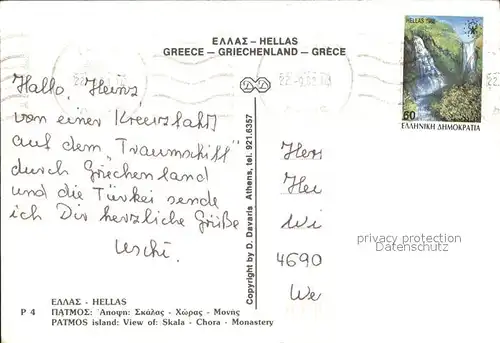 ΕΛΛΑΣ – HELLAS
GREECE – GRIECHENLAND – GRÈCE
HELLAS 1988
60
ΕΛΛΗΝΙΚΗ ΔΗΜΟΚΡΑΤΙΑ
Hallo, Heinz
von einer Kreuzfahrt
auf dem "Traumschiff"
durch Griechenland
und die Türkei sende
ich Dir herzliche Grüße
Uschi.
Copyright by D. Davaris Athens, tel. 921.6357
Herr
Hei
Wi
4690
We
privacy protection
Datenschutz
ΕΛΛΑΣ - HELLAS
P 4 ΠΑΤΜΟΣ: Ἄποψη: Σκάλας - Χώρας - Μονῆς
PATMOS island: View of: Skala - Chora - Monastery